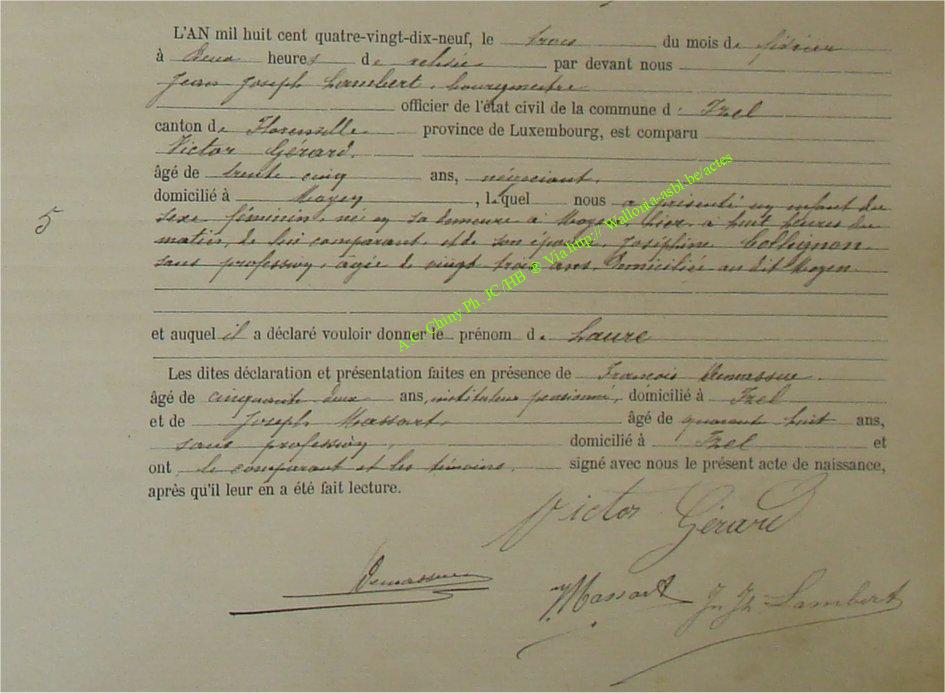 L'AN mil huit cent quatre-vingt-dix-neuf, le trois du mois de février
à deux heures de relevée par devant nous
Jean Joseph Lambert, bourgmestre
officier de l'état civil de la commune d' Izel
canton de Florenville province de Luxembourg, est comparu
Victor Gérard,
âgé de trente cinq ans, négociant,
domicilié à Moyen, lequel nous a présenté un enfant du
5
sexe féminin, né en sa demeure à Moyen, hier, à huit heures du
matin, de lui comparant et de son épouse Joséphine Collignon
sans profession, âgée de vingt trois ans, domiciliée au dit Moyen
et auquel il a déclaré vouloir donner le prénom de Laure
Les dites déclaration et présentation faites en présence de François Demasseur
âgé de cinquante deux ans, instituteur pensionné, domicilié à Izel
et de Joseph Massart, âgé de quarant huit ans,
sans profession, domicilié à Izel et
ont le comparant et les témoins, signé avec nous le présent acte de naissance,
après qu'il leur en a été fait lecture.
Victor Gérard
Demasseur
J. Massart Jn Jh Lambert
A.C. Chiny Ph. JC/HB ® Via http:// Wallonia-asbl.be/actes